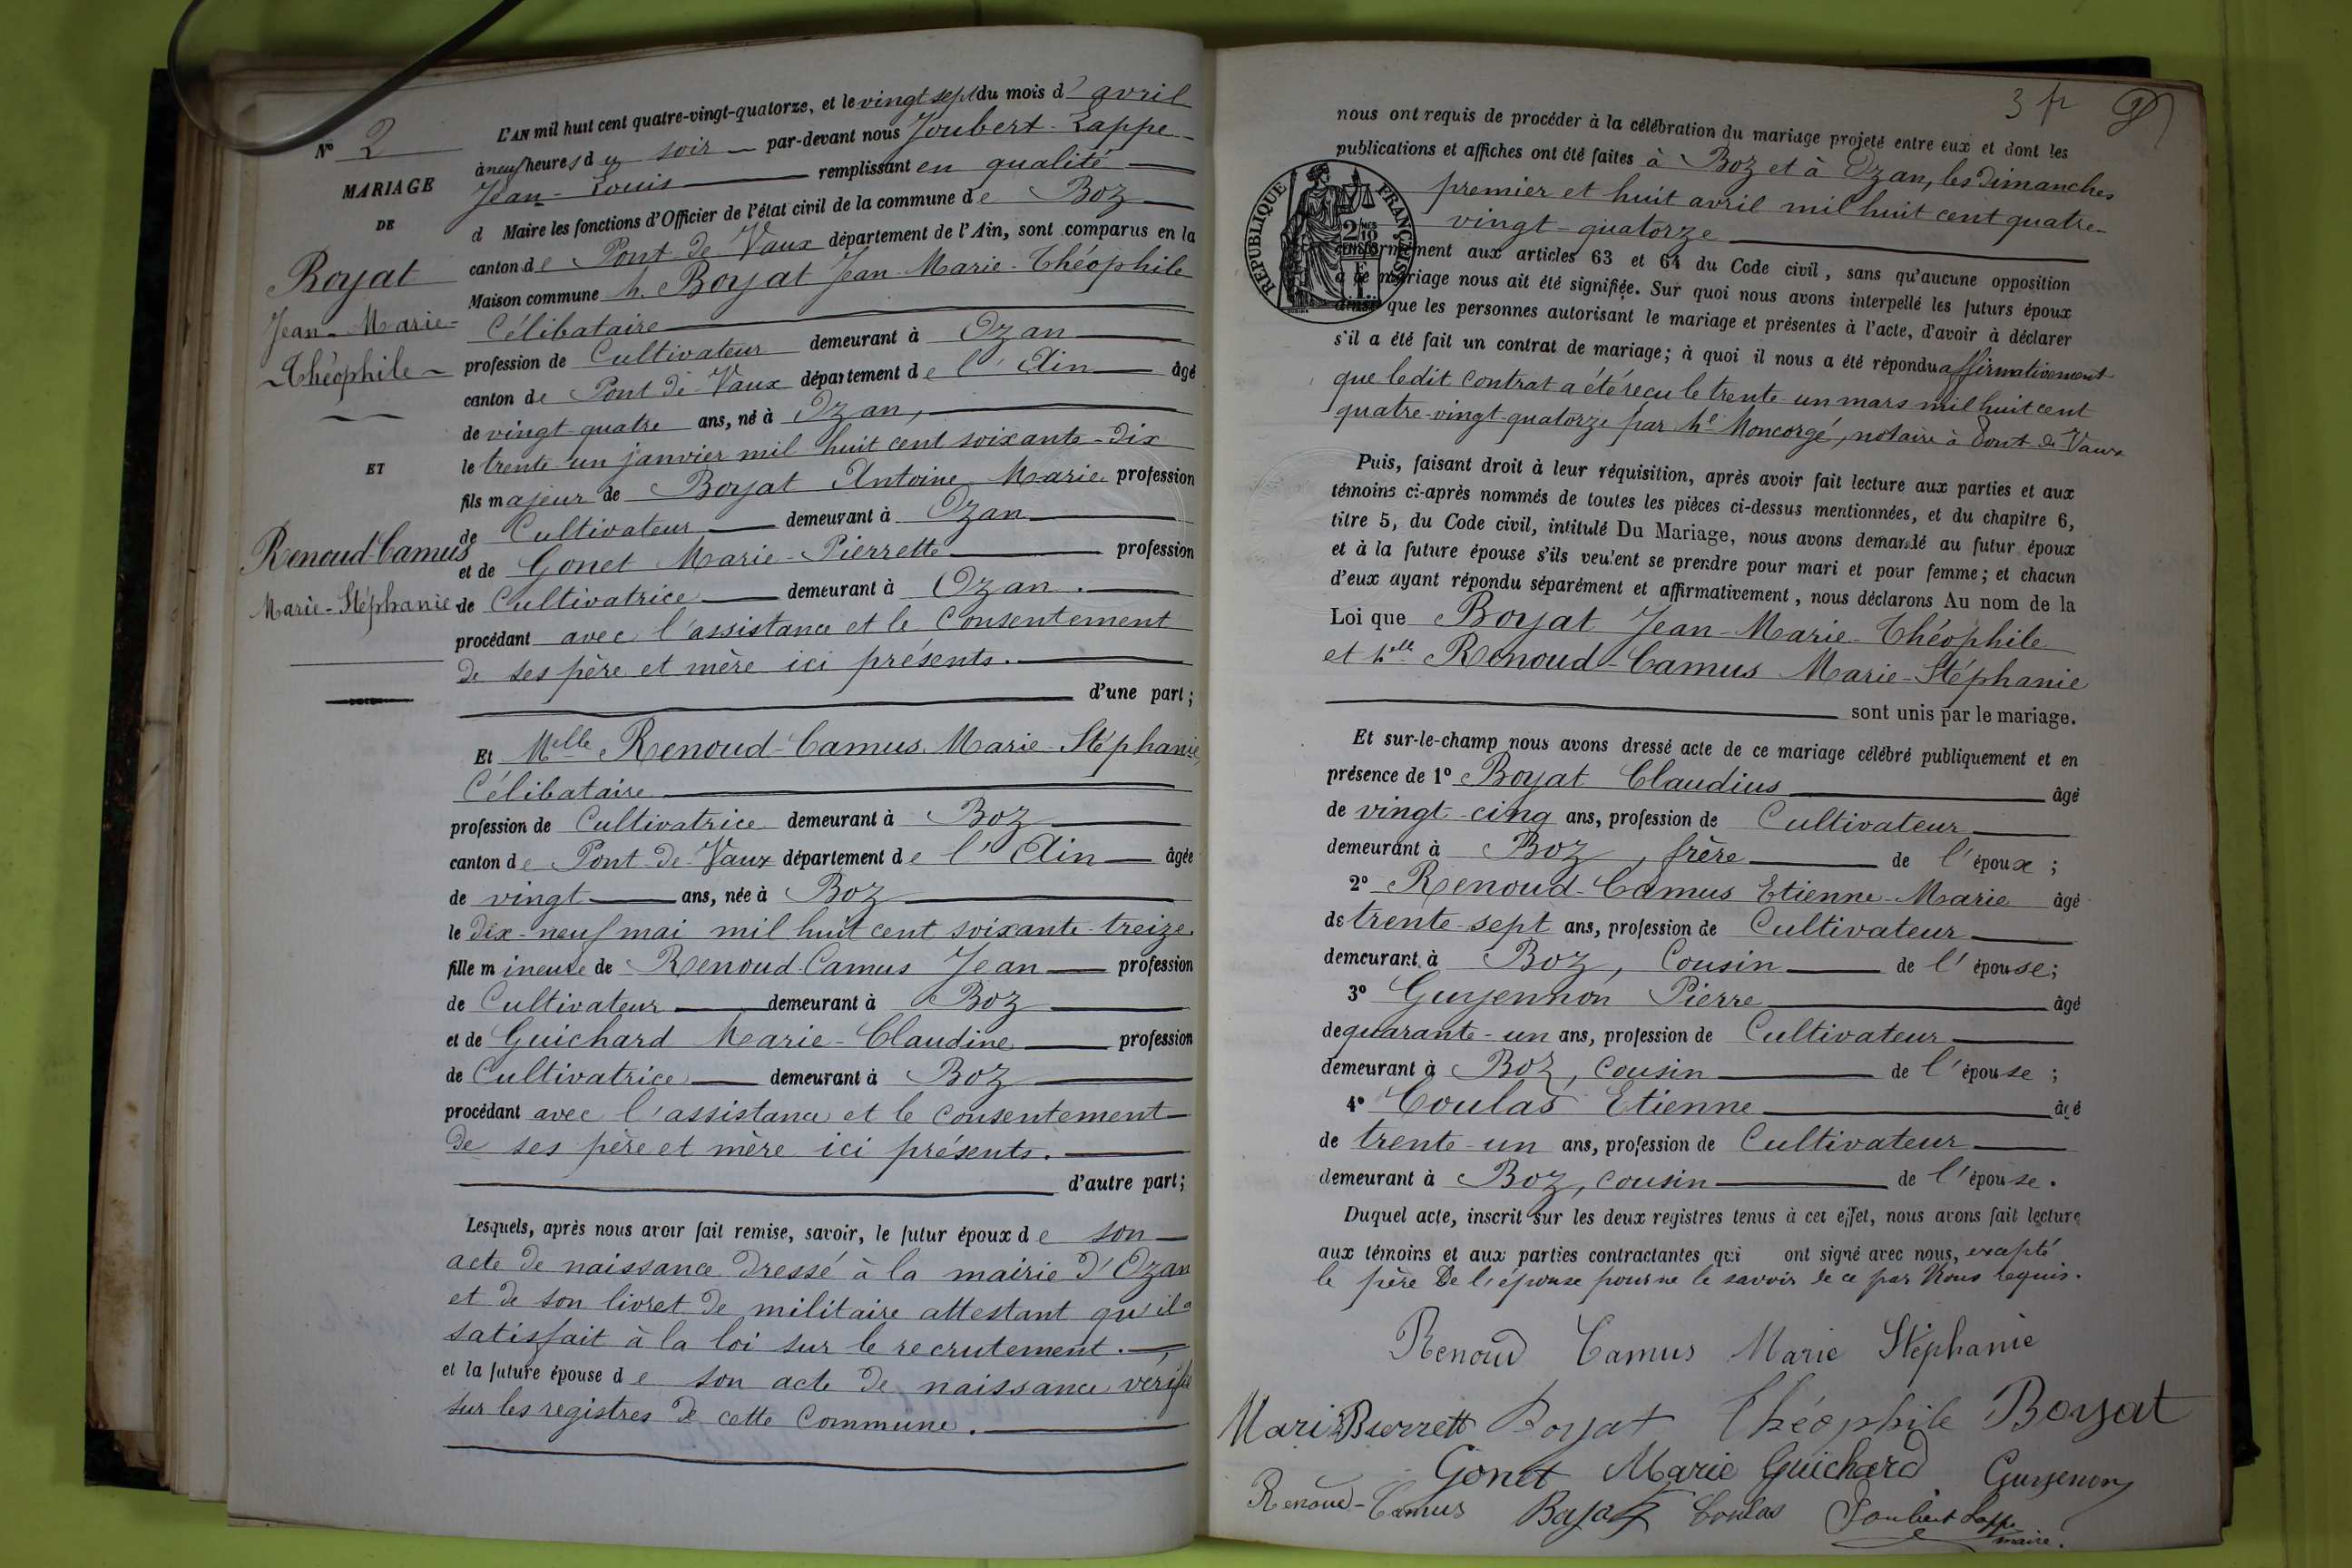 N° 2
MARIAGE
DE
Boyat
Jean-Marie-
Théophile
ET
Renoud-Camus
Marie-Stéphanie
L'AN mil huit cent quatre-vingt-quatorze, et le vingt sept du mois d'avril
à neuf heures du soir par-devant nous Joubert-Lappe
Jean-Louis remplissant en qualité
d Maire les fonctions d'Officier de l'état civil de la commune de Boz
canton de Pont de Vaux département de l'Ain, sont comparus en la
Maison commune M. Boyat Jean-Marie-Théophile
Célibataire
profession de Cultivateur demeurant à Ozan
canton de Pont de Vaux département de l'Ain âgé
de vingt-quatre ans, né à Ozan,
le trente-un janvier mil huit cent soixante-dix
fils majeur de Boyat Antoine Marie profession
de Cultivateur demeurant à Ozan
et de Gonet Marie-Pierrette profession
de Cultivatrice demeurant à Ozan.
procédant avec l'assistance et le Consentement
de ses père et mère ici présents.
d'une part;
Et Melle Renoud-Camus Marie-Stéphanie,
Célibataire
profession de Cultivatrice demeurant à Boz
canton de Pont-de-Vaux département de l'Ain âgée
de vingt ans, née à Boz
le dix-neuf mai mil huit cent soixante-treize
fille mineure de Renoud-Camus Jean profession
de Cultivateur demeurant à Boz
et de Guichard Marie-Claudine profession
de Cultivatrice demeurant à Boz
procédant avec l'assistance et le consentement
de ses père et mère ici présents.
d'autre part;
Lesquels, après nous avoir fait remise, savoir, le futur époux de son
acte de naissance dressé à la mairie d'Ozan
et de son livret de militaire attestant qu'il a
satisfait à la loi sur le recrutement.
et la future épouse de son acte de naissance vérifié
sur les registres de cette Commune.
3
nous ont requis de procéder à la célébration du mariage projeté entre eux et dont les
publications et affiches ont été faites à Boz et à Ozan, les Dimanches
premier et huit avril mil huit cent quatre-
vingt-quatorze
REPUBLIQUE FRANÇAISE
2/10
conformément aux articles 63 et 64 du Code civil, sans qu'aucune opposition
à ce mariage nous ait été signifiée. Sur quoi nous avons interpellé les futurs époux
ainsi que les personnes autorisant le mariage et présentes à l'acte, d'avoir à déclarer
s'il a été fait un contrat de mariage; à quoi il nous a été répondu affirmativement
que ledit contrat a été reçu le trente-un mars mil huit cent
quatre-vingt-quatorze par Me Moncorgé, notaire à Pont de Vaux
Puis, faisant droit à leur réquisition, après avoir fait lecture aux parties et aux
témoins ci-après nommés de toutes les pièces ci-dessus mentionnées, et du chapitre 6,
titre 5, du Code civil, intitulé Du Mariage, nous avons demandé au futur époux
et à la future épouse s'ils veulent se prendre pour mari et pour femme; et chacun
d'eux ayant répondu séparément et affirmativement, nous déclarons Au nom de la
Loi que Boyat Jean-Marie-Théophile
et Melle Renoud-Camus Marie-Stéphanie
sont unis par le mariage.
Et sur-le-champ nous avons dressé acte de ce mariage célébré publiquement et en
présence de 1° Boyat Claudius âgé
de vingt-cinq ans, profession de Cultivateur
demeurant à Boz, frère de l'époux;
2° Renoud-Camus Etienne-Marie âgé
de trente-sept ans, profession de Cultivateur
demeurant à Boz, Cousin de l'épouse;
3° Guyennon Pierre âgé
de quarante-un ans, profession de Cultivateur
demeurant à Boz, cousin de l'épouse;
4° Coulas Etienne âgé
de trente-un ans, profession de Cultivateur
demeurant à Boz, cousin de l'épouse.
Duquel acte, inscrit sur les deux registres tenus à cet effet, nous avons fait lecture
aux témoins et aux parties contractantes qui ont signé avec nous, excepté
le père de l'épouse pour ne le savoir de ce par Nous requis.
Renoud Camus Marie Stéphanie
Marie Pierrette Boyat Théophile Boyat
Gonet Marie Guichard Guyenon
Renoud-Camus Boyat Coulas Joubert Lappe
maire.